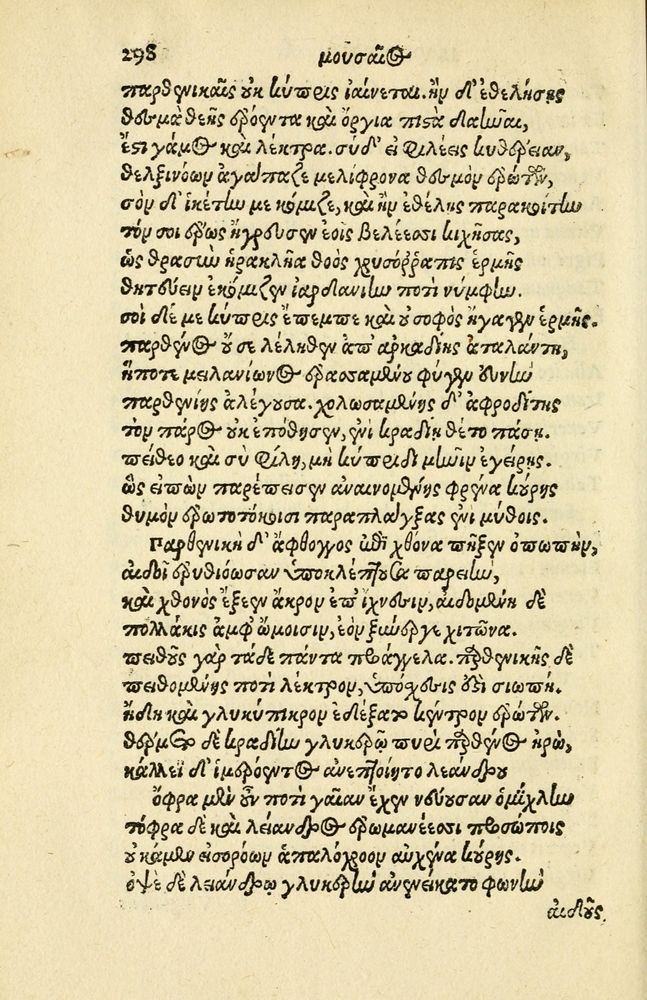 298 μουσαῖος
παρθενικαῖς οὐκ κύπρις ἰαίνεται. ἢν δ' ἐθελήσῃς
θεσμὰ θεῆς ἐρόεντα καὶ ὄργια πιστὰ δαῆναι,
ἔστι γάμος καὶ λέκτρα. σὺ δ' εἰ φιλέεις κυθέρειαν,
θελξινόων ἀγάπαζε μελίφρονα θεσμὸν ἐρώτων,
σὸν δ' ἱκέτην με κόμιζε, καὶ ἢν ἐθέλῃς παρακοίτην
τόν σοι ἔρως ἤγρευσεν ἑοῖς βελέεσσι κιχήσας,
ὡς θρασὺν ἡρακλῆα θοὸς χρυσόρραπις ἑρμῆς
θητεύειν ἐκόμιζεν ἰαρδανίην ποτὶ νύμφην.
σοὶ δέ με κύπρις ἔπεμπε καὶ οὐ σοφὸς ἤγαγεν ἑρμῆς.
παρθένος οὔ σε λέληθεν ἀπ' ἀρκαδίης ἀταλάντη,
ἥ ποτε μειλανίωνος ἐρασσαμένου φύγεν εὐνὴν
παρθενίης ἀλέγουσα. χολωσαμένης δ' ἀφροδίτης
τὸν πάρος οὐκ ἐπόθησεν, ἐνὶ κραδίῃ θέτο πάσῃ.
πείθεο καὶ σὺ φίλη, μὴ κύπριδι μῆνιν ἐγείρῃς.
ὣς εἰπὼν παρέπεισεν ἀναινομένης φρένα κούρης
θυμὸν ἐρωτοτόκοισι παραπλάγξας ἐνὶ μύθοις.
Παρθενικὴ δ' ἄφθογγος ἐπὶ χθόνα πῆξεν ὀπωπὴν,
αἰδοῖ ἐρυθιόωσαν ὑποκλέπτουσα παρειὴν,
καὶ χθονὸς ἔξεεν ἄκρον ἐπ' ἴχνεσιν, αἰδομένη δὲ
πολλάκις ἀμφ' ὤμοισιν, ἑὸν ξυνέεργε χιτῶνα.
πειθοῦς γὰρ τάδε πάντα προάγγελα. παρθενικῆς δὲ
πειθομένης ποτὶ λέκτρον, ὑπόσχεσις ἐστὶ σιωπή.
ἤδη καὶ γλυκύπικρον ἐδέξατο κέντρον ἐρώτων.
θέρμετο δὲ κραδίην γλυκερῷ πυρὶ παρθένος ἡρὼ,
κάλλεϊ δ' ἱμερόεντος ἀνεπτοίητο λεάνδρου
ὄφρα μὲν οὖν ποτὶ γαῖαν ἔχεν νεύουσαν ὀμίχλην
τόφρα δὲ καὶ λείανδρος ἐρωμανέεσσι προσώποις
οὐ κάμεν εἰσορόων ἁπαλόχροον αὐχένα κούρης.
ὀψὲ δὲ λειάνδρῳ γλυκερὴν ἀνενείκατο φωνὴν
αἰδοῦς